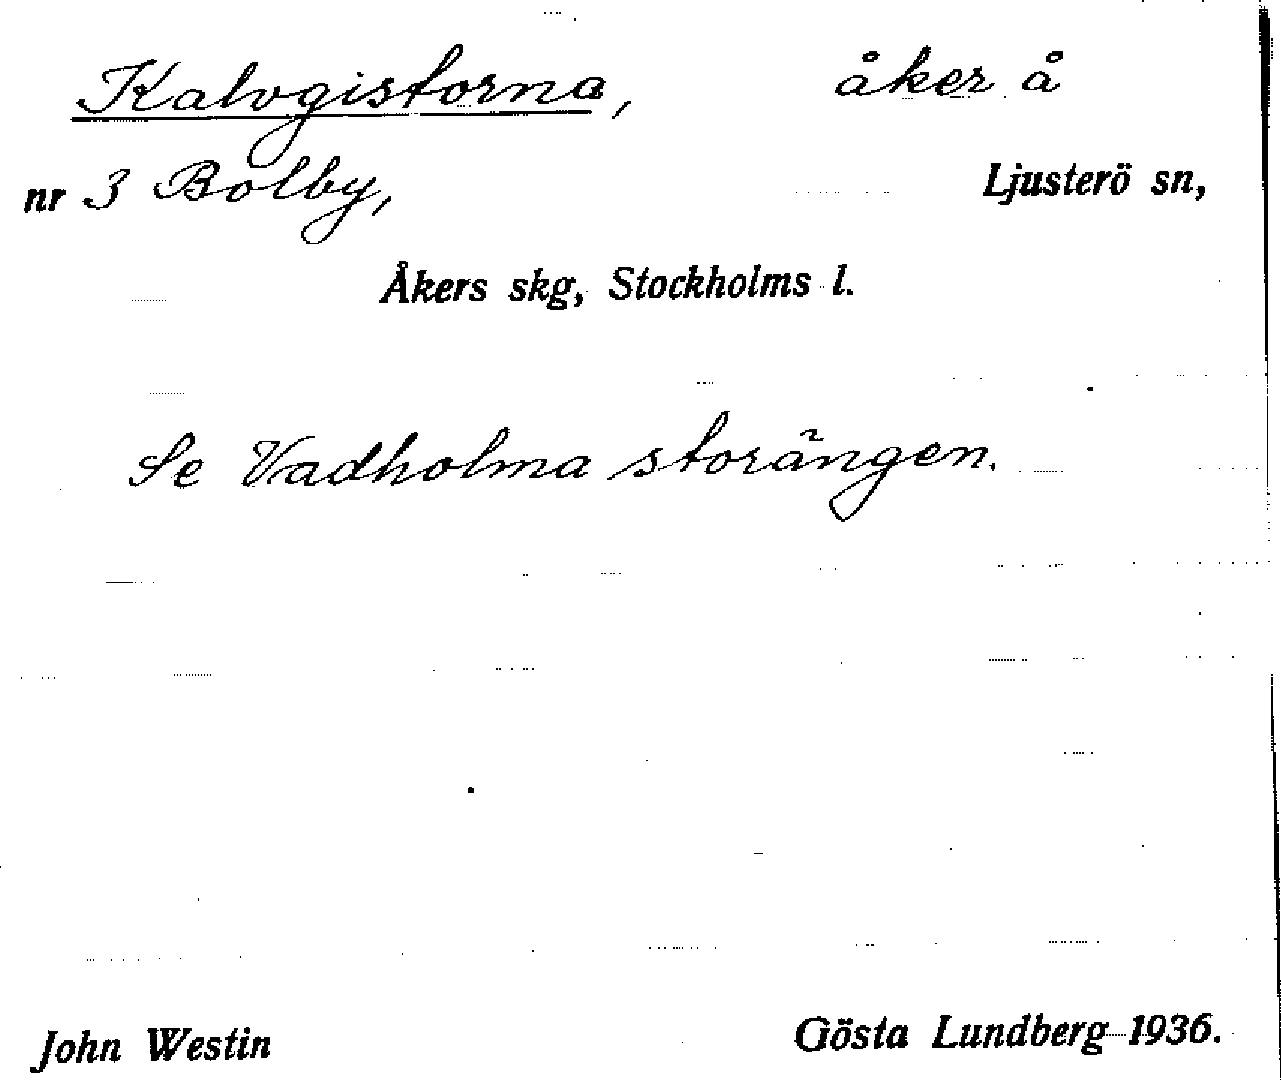 Kalvgistorna, åker å
nr 3 Bolby, Ljusterö sn,
Åkers skg, Stockholms l.
Se Vadholma storängen.
John Westin Gösta Lundberg 1936.